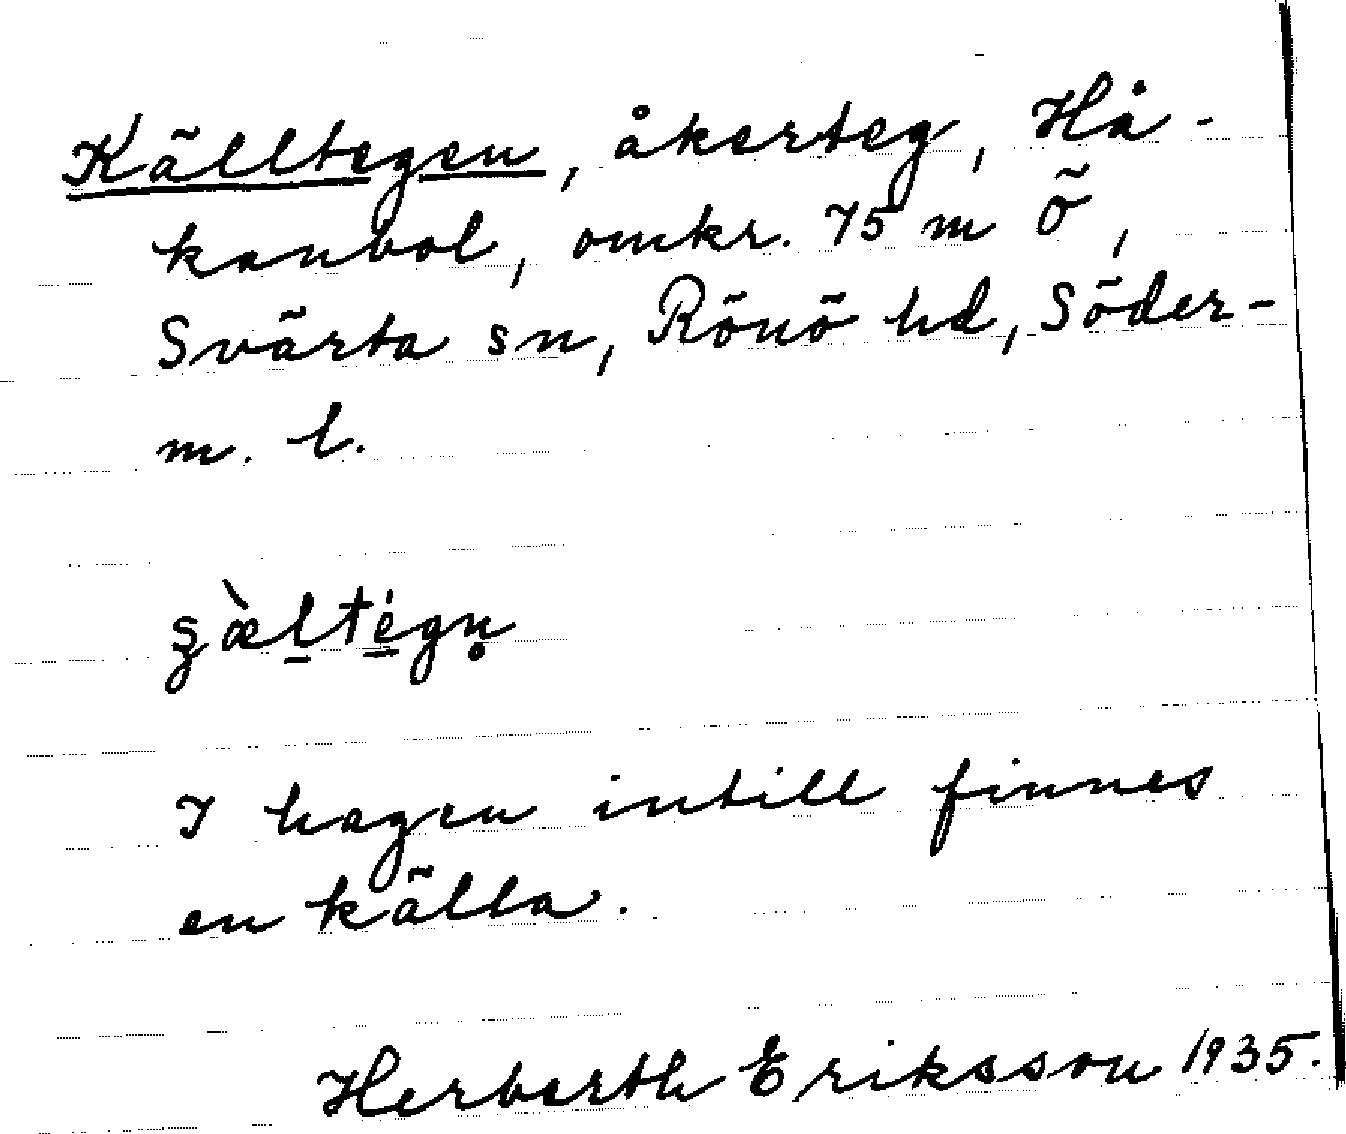 Källtegen, åkerteg, Hå-
kanbol, omkr. 75 m Ö,
Svärta sn, Rönö hd, Söder-
m. l.
I hagen intill finnes
en källa.
Herberth Eriksson 1935.